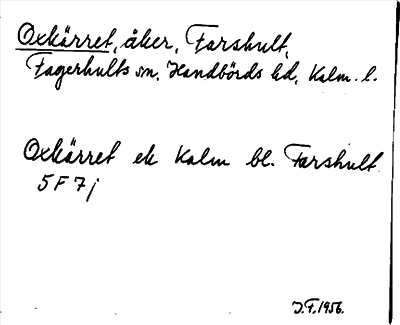 Oxkärret, åker, Farshult,
Fagerhults sn, Handbörds hd, Kalm. l.
Oxkärret ek Kalm bl. Farshult
5F7j
J.F. 1956.